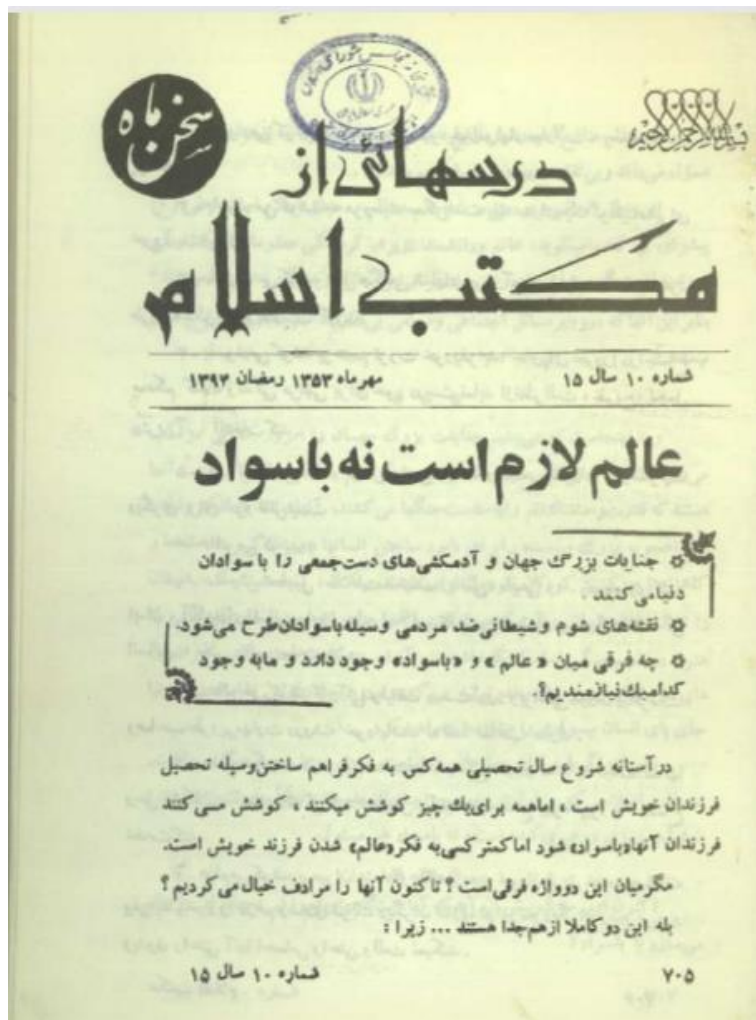 بسم الله الرحمن الرحیم
سخن ماه
درسهائی از
مکتب اسلام
شماره ۱۰ سال ۱۵
مهرماه ۱۳۵۳ رمضان ۱۳۹۴
عالم لازم است نه باسواد
✡ جنایات بزرگ جهان و آدمکشی‌های دست‌جمعی را باسوادان
دنیا می‌کنند.
✡ نقشه‌های شوم و شیطانی ضد مردمی وسیله باسوادان طرح می‌شود.
✡ چه فرقی میان «عالم» و «باسواد» وجود دارد و ما به وجود
کدامیك نیازمندیم؟.
در آستانه شروع سال تحصیلی همه کس به فکر فراهم ساختن وسیله تحصیل
فرزندان خویش است، اما همه برای یك چیز کوشش میکنند، کوشش می‌کنند
فرزندان آنها «باسواد» شود اما کمتر کسی به فکر «عالم» شدن فرزند خویش است.
مگر میان این دو واژه فرقی است؟ تا کنون آنها را مرادف خیال می‌کردیم؟
بله این دو کاملا از هم جدا هستند ... زیرا:
۷۰۵
شماره ۱۰ سال ۱۵